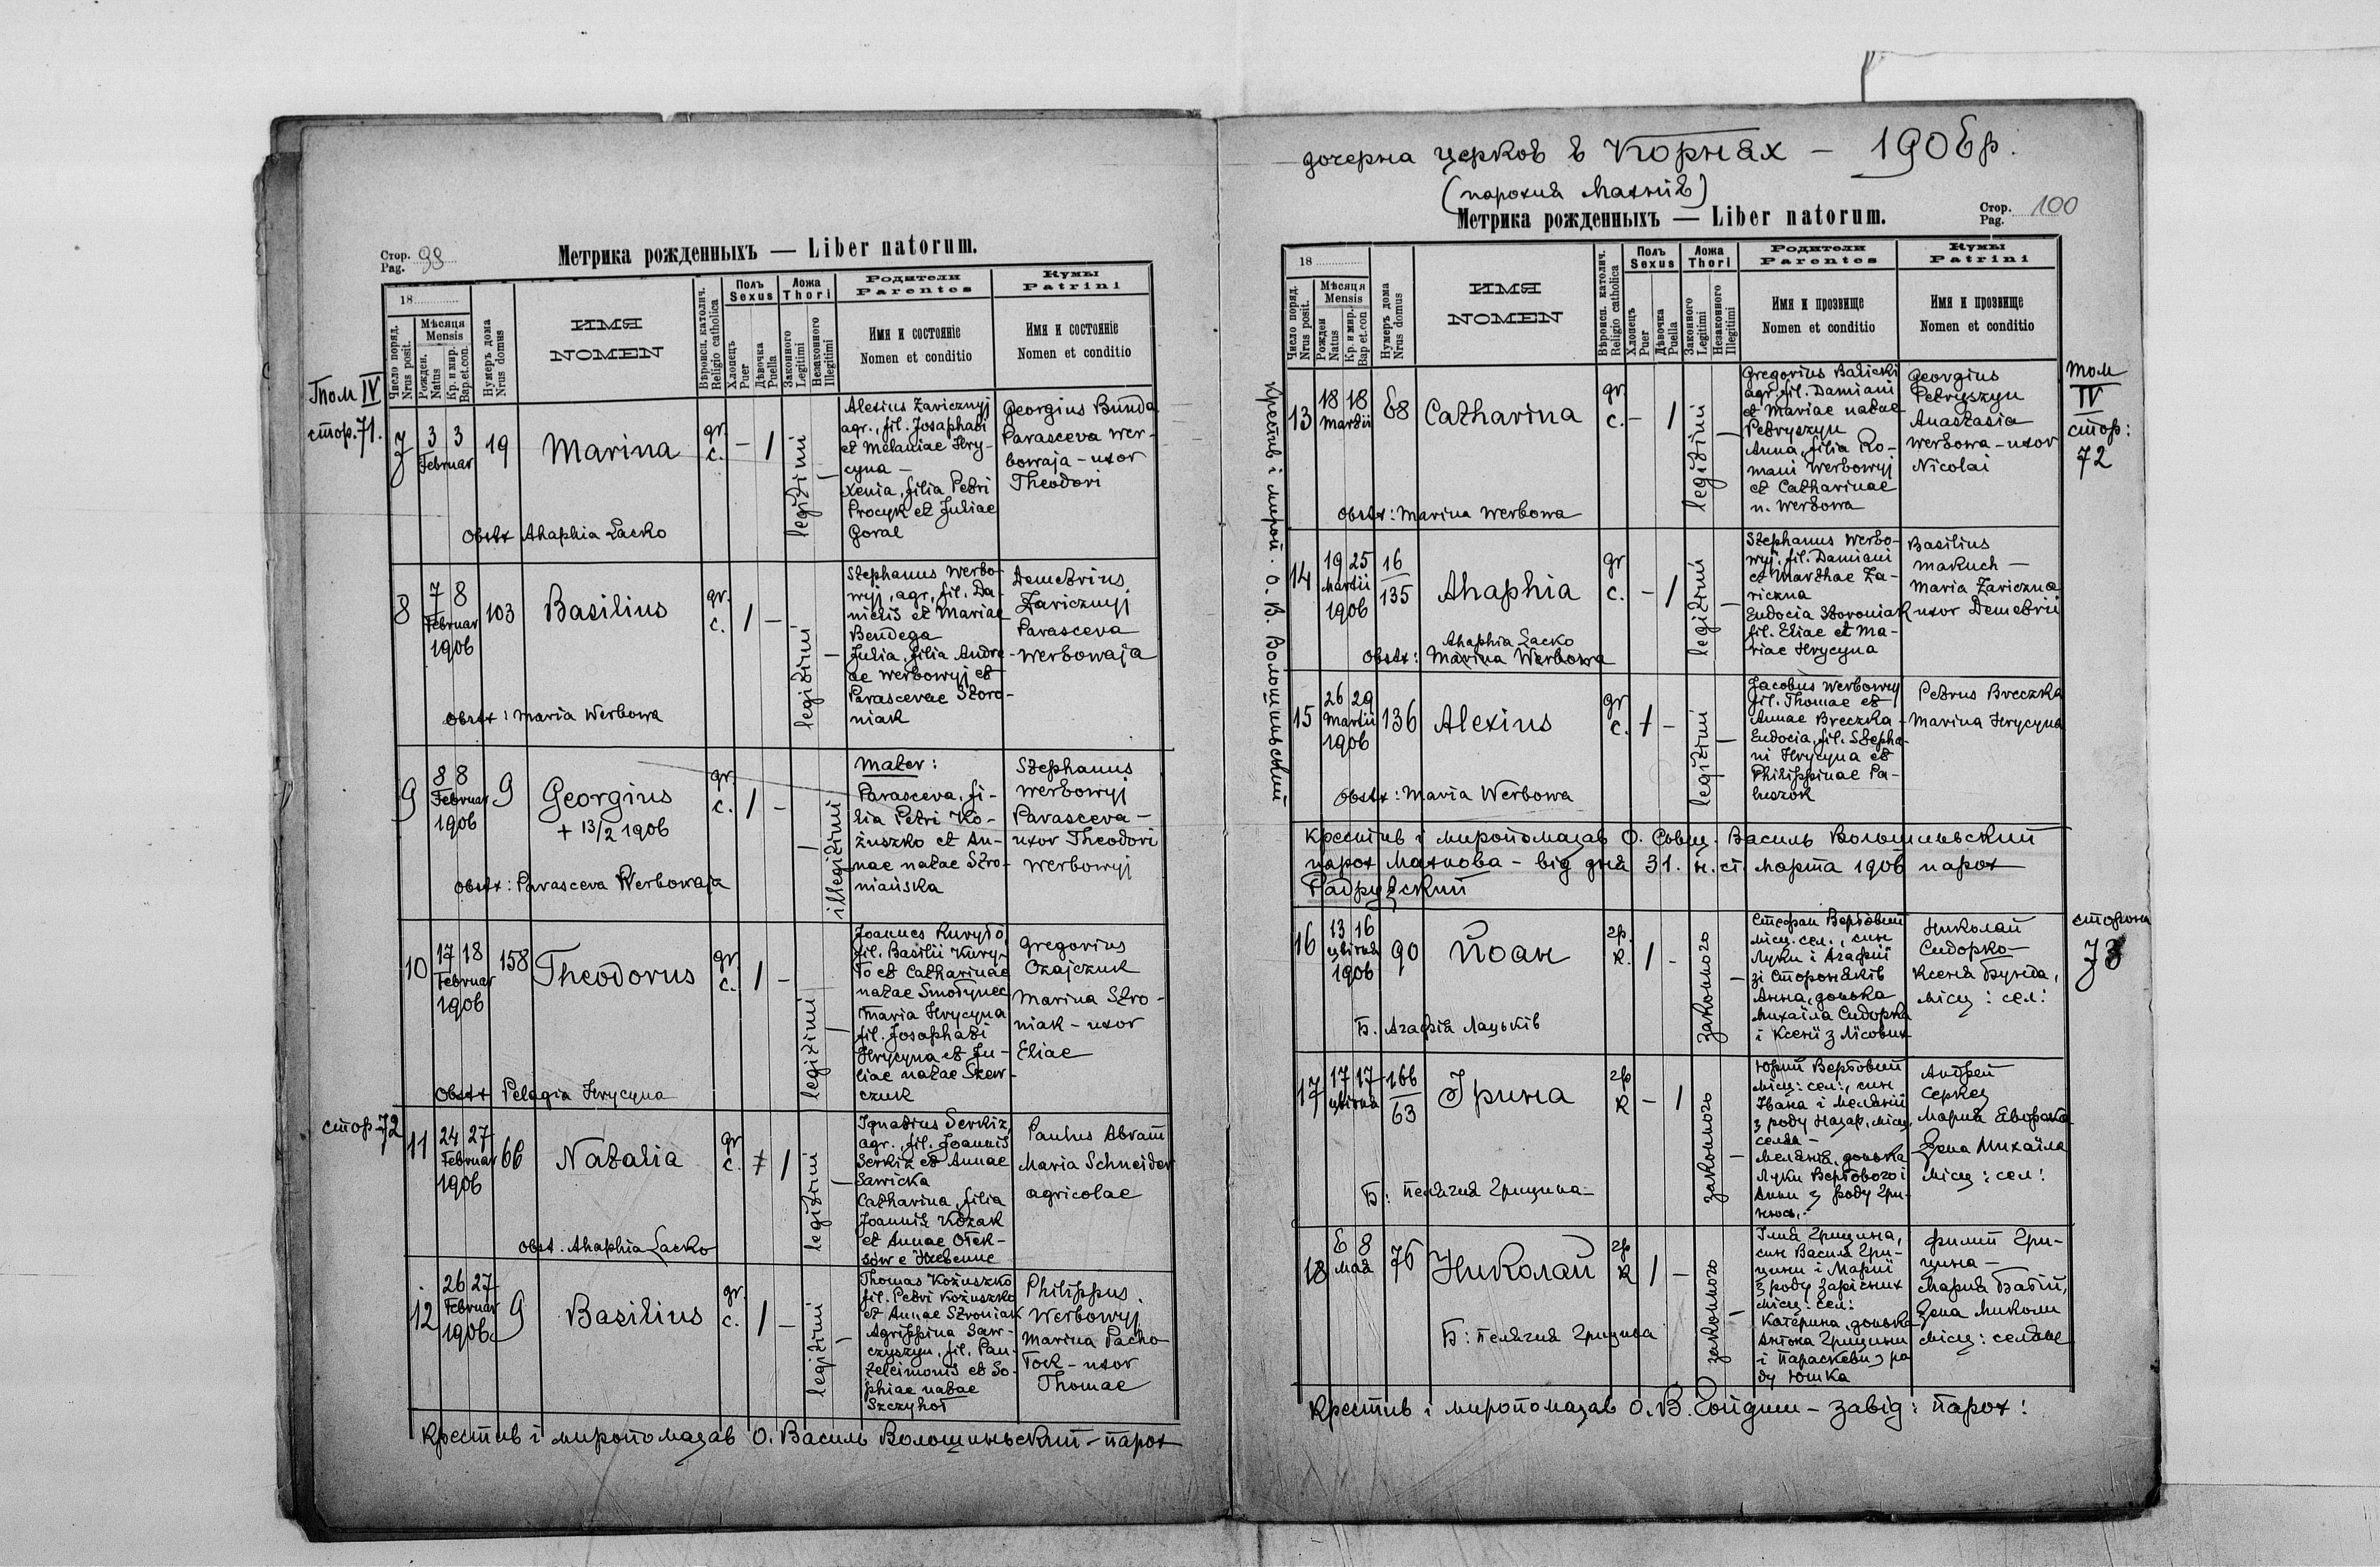 Стор.
Pag. 98
Метрика рожденныхъ — Liber natorum.
18
Число поряд.
Nrus posit.
Мѣсяця
Mensis
Рожден.
Natus
Кр. и мир.
Bap. et. con.
Нумеръ дома
Nrus domus
ИМЯ
NOMEN
Вѣроисп. католич.
Religio catholica
Полъ
Sexus
Хлопецъ
Puer
Дѣвочка
Puella
Ложа
Thori
Законного
Legitimi
Незаконного
Illegitimi
Родители
Parentes
Имя и состоянiе
Nomen et conditio
Кумы
Patrini
Имя и состоянiе
Nomen et conditio
Том IV
стор. 71.
7
3 3
Februar
19
Marina
gr.
c.
– 1
legitimi
Alexius Zaricznyj
agr., fil. Josaphati
et Melaniae Hry-
cyna –
Xenia, filia Petri
Procyk et Juliae
Goral
Georgius Bunda
Parasceva Wer-
bowaja – uxor
Theodori
Obstx Ahaphia Lacko
8
7 8
Februar
1906
103
Basilius
gr.
c.
1 –
legitimi
Stephanus Werbo-
wyj, agr., fil. Da-
nielis et Mariae
Bendega
Julia, filia Andre-
ae Werbowyj et
Parascevae Storo-
niak
Demetrius
Zaricznyj
Parasceva
Werbowaja
Obstx: Maria Werbowa
9
8 8
Februar
1906
9
Georgius
+ 13/2 1906
gr.
c.
1 –
illegitimi
Mater:
Parasceva, fi-
lia Petri Ko-
żuszko et An-
nae natae Stro-
niańska
Stephanus
Werbowyj
Parasceva –
uxor Theodori
Werbowyj
Obstx: Parasceva Werbowaja
10
17 18
Februar
1906
158
Theodorus
gr.
c.
1 –
legitimi
Joannes Kuryło,
fil. Basilii Kury-
ło et Catharinae
natae Smołynec
Maria Hrycyna
fil. Josaphati
Hrycyna et Ju-
liae natae Skew-
czuk
Gregorius
Ozajczuk
Marina Stro-
niak – uxor
Eliae
Obstx Pelagia Hrycyna
стор 72
11
24 27
Februar
1906
66
Natalia
gr.
c.
1
legitimi
Ignatius Serkiz,
agr., fil. Joannis
Serkiz et Annae
Sawicka
Catharina, filia
Joannis Kozak
et Annae Ołek-
sów e Hrebenne
Paulus Abram
Maria Schneider
agricolae
Obst. Ahaphia Lacko
12
26 27
Februar
1906
9
Basilius
gr.
c.
1 –
legitimi
Thomas Kożuszko
fil. Petri Kożuszko
et Annae Stroniak
Agrippina Saw-
czyszyn, fil. Pan-
teleimonis et So-
phiae natae
Szczyhoł
Philippus
Werbowyj
Marina Pacho-
łok – uxor
Thomae
Крестив і миропомазав О. Василь Волошиньский – парох
дочерна церков в Корнях – 1906р.
(парохия Махнів)
Метрика рожденныхъ — Liber natorum.
Стор.
Pag. 100
18
Число поряд.
Nrus posit.
Мѣсяця
Mensis
Рожден
Natus
Кр. и мир.
Bap. et. con.
Нумеръ дома
Nrus domus
ИМЯ
NOMEN
Вѣроисп. католич.
Religio catholica
Полъ
Sexus
Хлопецъ
Puer
Дѣвочка
Puella
Ложа
Thori
Законного
Legitimi
Незаконного
Illegitimi
Родители
Parentes
Имя и прозвище
Nomen et conditio
Кумы
Patrini
Имя и прозвище
Nomen et conditio
Крестив і мироп. О. В. Волошиньский
13
18 18
Martii
68
Catharina
gr.
c.
– 1
legitimi
Gregorius Balicki
agr. fil. Damiani
et Mariae natae
Petryszyn
Anna, filia Ro-
mani Werbowyj
et Catharinae
n. Werbowa
Georgius
Petryszyn
Anastasia
Werbowa – uxor
Nicolai
том
IV
стор:
72
Obstx: Marina Werbowa
14
19 25
Martii
1906
16
135
Ahaphia
gr
c.
– 1
legitimi
Stephanus Werbo-
wyj, fil. Damiani
et Marthae Za-
riczna
Eudocia Storoniak
fil. Eliae et Ma-
riae Hrycyna
Basilius
Makuch –
Maria Zariczna
uxor Demetrii
Ahaphia Lacko
Obstx: Marina Werbowa
15
26 29
Martii
1906
136
Alexius
gr
c.
1 –
legitimi
Jacobus Werbowyj
fil. Thomae et
Annae Breczka –
Eudocia, fil. Stepha-
ni Hrycyna et
Philippinae Pa-
huszok
Petrus Breczka
Marina Hrycyna
Obstx: Maria Werbowa
Крестив і миропомазав О. Совіт. Василь Волошиньский
парох Махнова – від дня 31. н. ст. марта 1906 парох
Радружский
16
13 16
цвітня
1906
90
Йоан
гр.
к.
1 –
законного
Стефан Вербовий
місц. сел., син
Луки і Агафії
зі Стороняків
Анна, донька
Михаіла Сидорка
і Ксенії з Лісових
Николай
Сидорко –
Ксеня Бунда,
місц: сел:
сторона
73
Б. Агафія Лацьків
17
17 17
цвітня
166
63
Ірина
гр
к
– 1
законного
Юрий Вербовий
місц: сел:, син
Івана і Меланії
з роду Назар, місц.
селян –
Меланія, донька
Луки Вербового і
Анни з роду Гри-
Андрей
Серкез
Мария
Жена Михаіла
місц: сел:
Б: Пелагия Грицина –
18
6 8
мая
76
Николай
гр
к
1 –
законного
Ілия Грицина,
син Василя Гри-
цини і Марії
з роду Зарічних
місц: сел:
Катерина, донька
Антона Грицини
і Параскеви з ро
ду Юшка
Филип Гри-
цина –
Мария Бабій,
жена Миколи
місц: селяне
Б: Пелагия Грицина
Крестив і миропомазав О. В. Гойдиш – завід: парох: